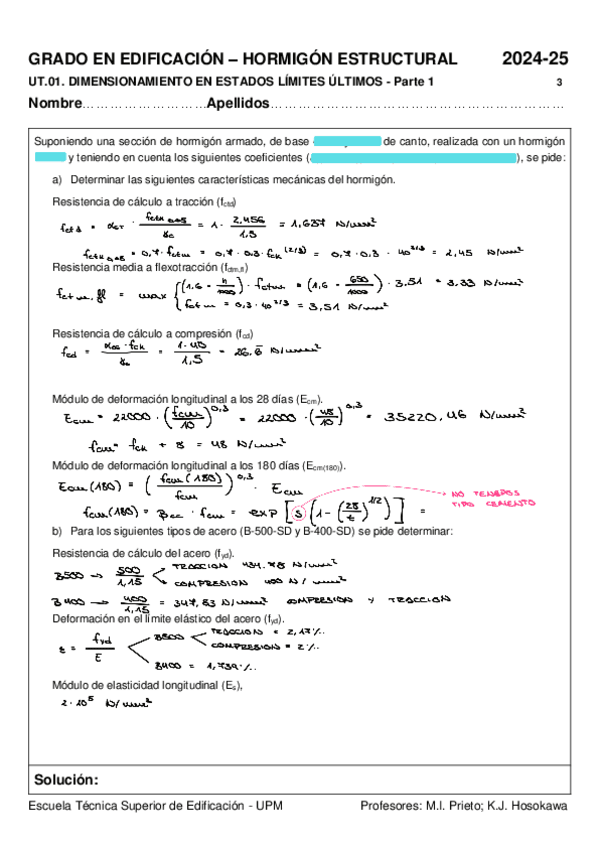 GRADO EN EDIFICACIÓN – HORMIGÓN ESTRUCTURAL 2024-25
UT.01. DIMENSIONAMIENTO EN ESTADOS LÍMITES ÚLTIMOS - Parte 1 3
Nombre……………………….Apellidos……………………………………………………
Suponiendo una sección de hormigón armado, de base de canto, realizada con un hormigón
y teniendo en cuenta los siguientes coeficientes ( ), se pide:
a) Determinar las siguientes características mecánicas del hormigón.
Resistencia de cálculo a tracción (fctd)
fctd = αct · fctk 0,05 / γc = 1 · 2,456 / 1,5 = 1,637 N/mm²
fctk 0,05 = 0,7 · fctm = 0,7 · 0,3 · fck^(2/3) = 0,7 · 0,3 · 40^2/3 = 2,45 N/mm²
Resistencia media a flexotracción (fctm,fl)
fctm,fl = max { (1,6 - h/1000) · fctm = (1,6 - 650/1000) · 3,51 = 3,33 N/mm²
fctm = 0,3 · 40^2/3 = 3,51 N/mm²
Resistencia de cálculo a compresión (fcd)
fcd = αcc · fck / γc = 1 · 40 / 1,5 = 26,6 N/mm²
Módulo de deformación longitudinal a los 28 días (Ecm).
Ecm = 22000 · (fcm/10)^0,3 = 22000 · (48/10)^0,3 = 35220,46 N/mm²
fcm = fck + 8 = 48 N/mm²
Módulo de deformación longitudinal a los 180 días (Ecm(180)).
Ecm(180) = (fcm(180) / fcm)^0,3 · Ecm
fcm(180) = βcc · fcm = EXP [S (1 - (28/t)^1/2)] = NO TENEMOS
TIPO CEMENTO
b) Para los siguientes tipos de acero (B-500-SD y B-400-SD) se pide determinar:
Resistencia de cálculo del acero (fyd).
B500 → 500/1,15 TRACCION 434,78 N/mm²
COMPRESION 400 N/mm²
B400 → 400/1,15 = 347,83 N/mm² COMPRESION Y TRACCION
Deformación en el límite elástico del acero (fyd).
ε = fyd / E B500 TRACCION = 2,17‰
COMPRESION = 2‰
B400 = 1,739‰
Módulo de elasticidad longitudinal (Es),
2 · 10⁵ N/mm²
Solución:
Escuela Técnica Superior de Edificación - UPM Profesores: M.I. Prieto; K.J. Hosokawa